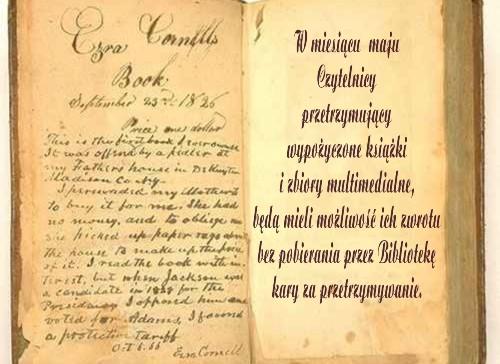 Ezra Cornell's
Book
September 23rd. 1826
Price one dollar
This is the first book I ever owned
It was offered by a pedler at
my Fathers house in DeRuyter
Madison Co NY
I persuaded my Mother
to buy it for me. She had
no money, and to oblige me
she picked up paper rags about
the house to make up the price
of it. I read the book with in-
terest, but when Jackson was
a candidate in 1828 for the
Presidency I opposed him and
voted for Adams, I favored
a protective tariff
Ezra Cornell
W miesiącu maju
Czytelnicy
przetrzymujący
wypożyczone książki
i zbiory multimedialne,
będą mieli możliwość ich zwrotu
bez pobierania przez Bibliotekę
kary za przetrzymywanie.